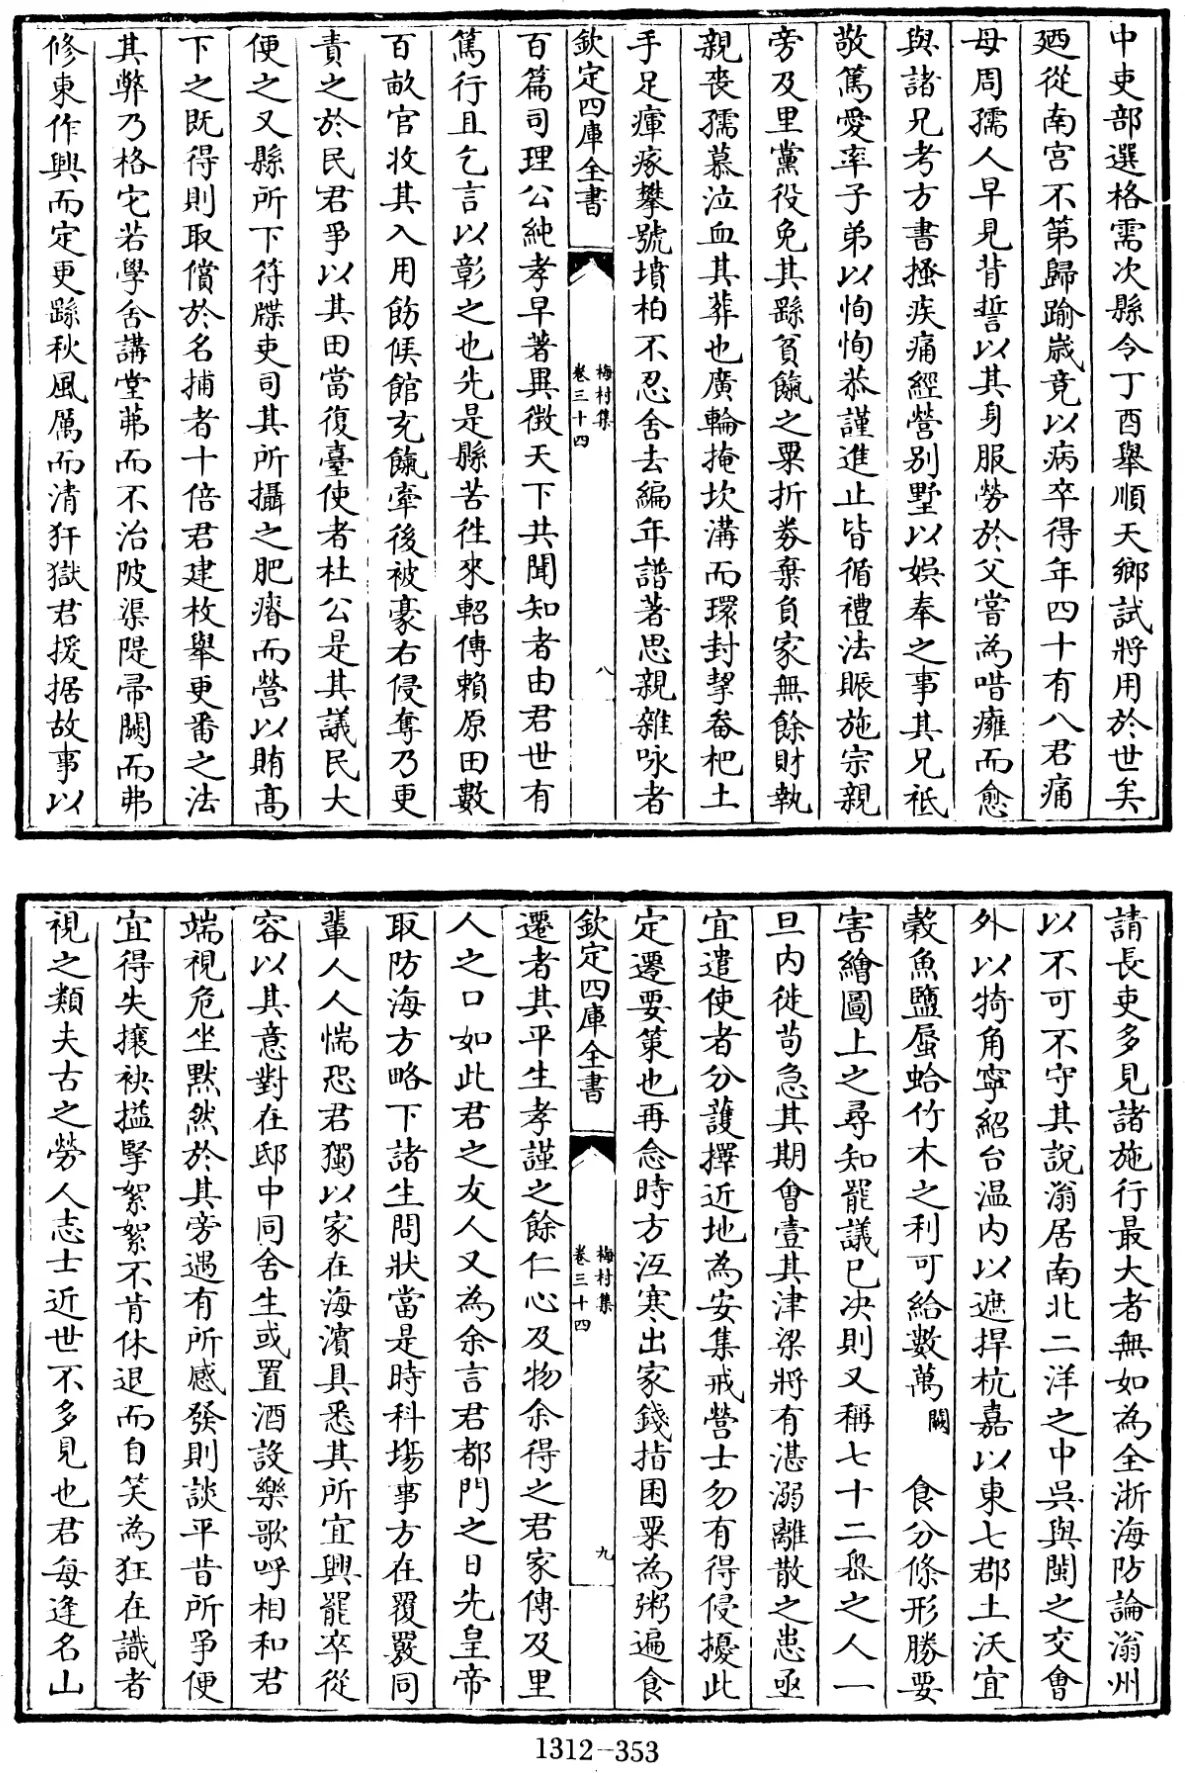 中吏部選格需次縣令丁酉舉順天鄉試將用於世矣
廼從南宫不第歸踰嵗竟以病卒得年四十有八君痛
母周孺人早見背誓以其身服勞於父嘗為唶癰而愈
與諸兄考方書搔疾痛經營别墅以娯奉之事其兄祗
敬篤愛率子弟以恂恂恭謹進止皆循禮法賑施宗親
旁及里黨役免其繇貧餼之粟折劵棄負家無餘財執
親喪孺慕泣血其葬也廣輪掩坎溝而環封挈畚杷土
手足瘇瘃攀號墳柏不忍舍去編年譜著思親雜咏者
欽定四庫全書
梅村集
卷三十四
八
百篇司理公純孝早著異徴天下共聞知者由君世有
篤行且乞言以彰之也先是縣苦徃來軺傳賴原田數
百畝官收其入用飭候館充餼牽後被豪右侵奪乃更
責之於民君爭以其田當復臺使者杜公是其議民大
便之又縣所下符牒吏司其所攝之肥瘠而營以賄髙
下之既得則取償於名捕者十倍君建枚舉更番之法
其弊乃格它若學舍講堂茀而不治陂渠隄帚闕而弗
修東作興而定更繇秋風厲而清犴獄君援据故事以
請長吏多見諸施行最大者無如為全浙海防論滃州
以不可不守其說滃居南北二洋之中吳與閩之交會
外以犄角寧紹台温内以遮捍杭嘉以東七郡土沃宜
穀魚鹽蜃蛤竹木之利可給數萬闕食分條形勝要
害繪圖上之尋知罷議已决則又稱七十二墺之人一
旦内徙苟急其期會壹其津梁將有湛溺離散之患亟
宜遣使者分護擇近地為安集戒營士勿有得侵擾此
定遷要策也再念時方沍寒出家錢指囷粟為粥遍食
欽定四庫全書
梅村集
卷三十四
九
遷者其平生孝謹之餘仁心及物余得之君家傳及里
人之口如此君之友人又為余言君都門之日先皇帝
取防海方略下諸生問狀當是時科塲事方在覆覈同
輩人人惴恐君獨以家在海濱具悉其所宜興罷卒從
容以其意對在邸中同舍生或置酒設樂歌呼相和君
端視危坐黙然於其旁遇有所感發則談平昔所爭便
宜得失攘袂搤掔絮絮不肯休退而自笑為狂在識者
視之類夫古之勞人志士近世不多見也君每逢名山
1312-353